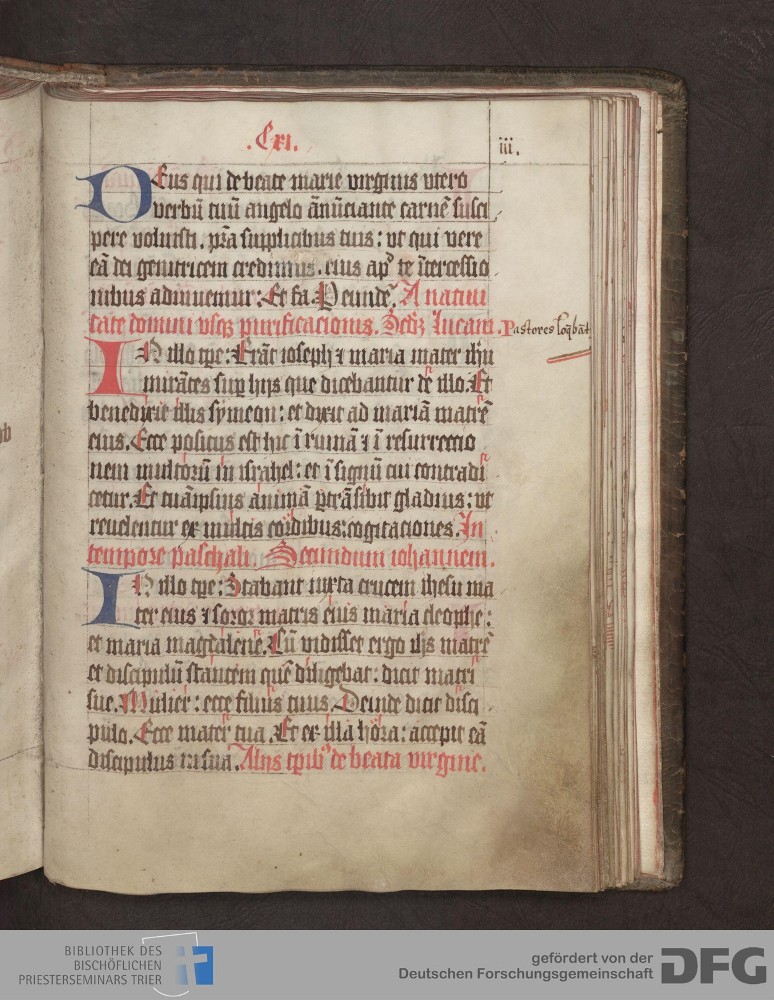 .Cxi.
iii.
DEus qui de beate marie virginis vtero
verbū tuū angelo ānūciante carnē susci
pere voluisti. p̄ta supplicibus tuis: vt qui vere
eā dei genitricem credimus. eius apꝰ te ītercessio
nibus adiuuemur: Et fa. A natiui
tate domini vsqꝫ purificacionis. Scd̄ꝫ lucam.
Pastores loq̄bāt̄
IN illo tꝑe: Erāt ioseph ⁊ maria mater ih̄u
mirātes suꝑ hijs que dicebantur de illo. Et
benedixit illis symeon: et dixit ad mariā matrē
eius. Ecce positus est hic ī ruinā ⁊ ī resurrectio
nem multorū in israhel: et ī signū cui contradi
cetur. Et tuāipsius animā ꝑtrāsibit gladius: vt
reuelentur ex multis cordibus: cogitaciones. In
tempore paschali. Secundum iohannem.
IN illo tꝑe: Stabant iuxta crucem ihesu ma
ter eius ⁊ soror matris eius maria cleophe:
et maria magdalene. Cū vidisset ergo ih̄s matrē
et discipulū stantem quē diligebat: dicit matri
sue. Mulier: ecce filius tuus. Deinde dicit disci
pulo. Ecce mater tua. Et ex illa hora: accepit eā
discipulus in sua. Alijs tꝑibꝰ de beata virgine.
BIBLIOTHEK DES
BISCHÖFLICHEN
PRIESTERSEMINARS TRIER
gefördert von der
Deutschen Forschungsgemeinschaft
DFG